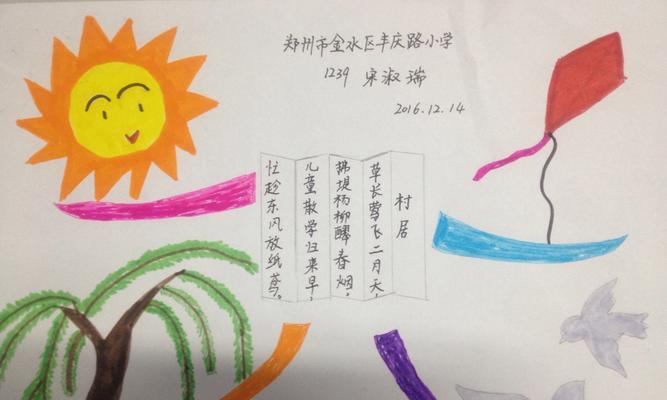 郑州市金水区丰庆路小学
1239 宋淑瑞
2016.12.14
村居
草长莺飞二月天,
拂堤杨柳醉春烟,
儿童散学归来早,
忙趁东风放纸鸢。